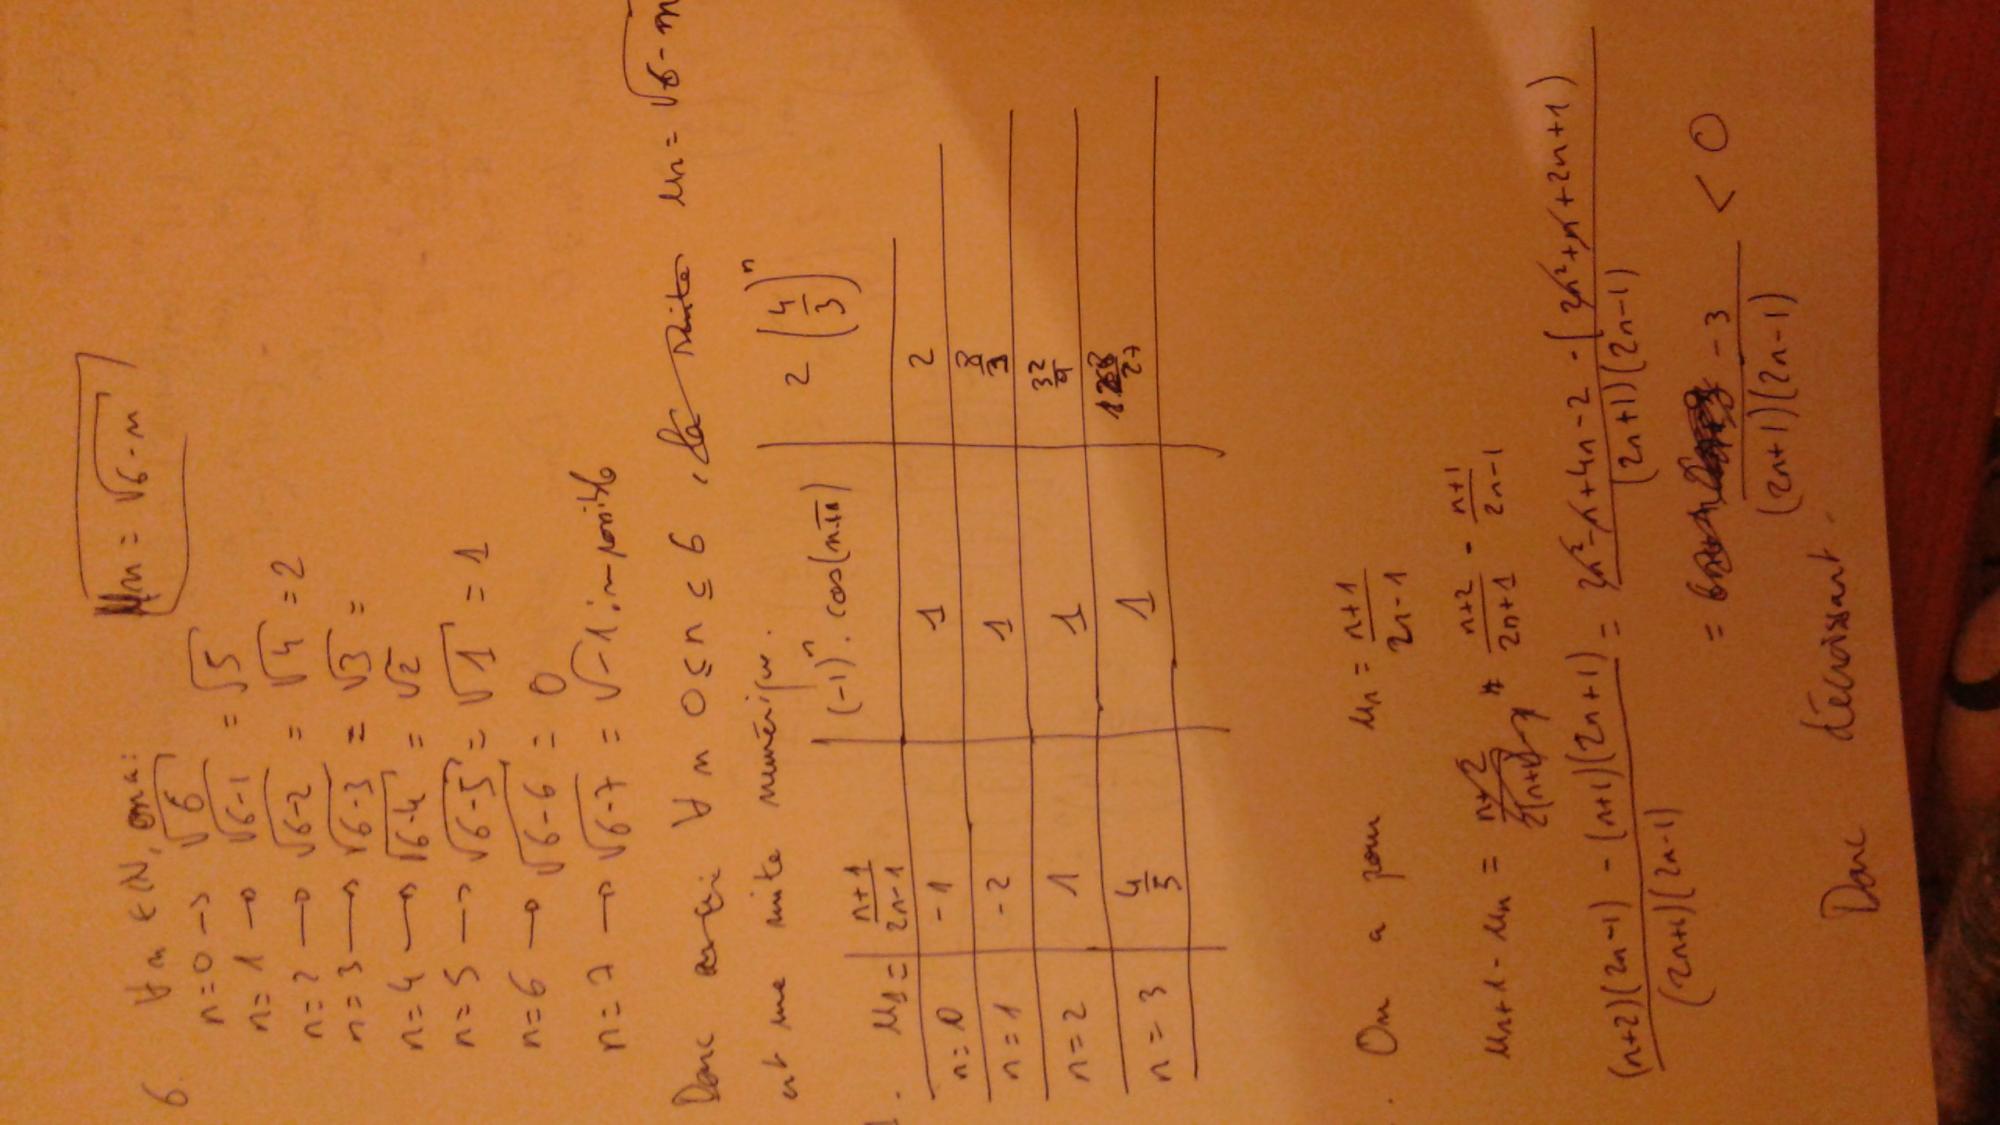 Un = √6-n
6. ∀ n ∈ N, on a:
n=0 → √6
n=1 → √6-1 = √5
n=2 → √6-2 = √4 = 2
n=3 → √6-3 = √3 =
n=4 → √6-4 = √2
n=5 → √6-5 = √1 = 1
n=6 → √6-6 = 0
n=7 → √6-7 = √-1 impossible
Donc ∀ n 0 ≤ n ≤ 6, la suite Un = √6-n
est une suite numérique.
1. U1 = | n+1/2n-1 | (-1)^n . cos(nπ) | 2 (4/3)^n
n=0 | -1 | 1 | 2
n=1 | -2 | 1 | 8/3
n=2 | 1 | 1 | 32/9
n=3 | 4/5 | 1 | 128/27
. On a pour Un = n+1/2n-1
Un+1 - Un = n+2/2n+1 - n+1/2n-1
(n+2)(2n-1) - (n+1)(2n+1)/(2n+1)(2n-1) = 2n²-n+4n-2-(2n²+n+2n+1)/(2n+1)(2n-1)
= -3/(2n+1)(2n-1) < 0
Donc décroissant.